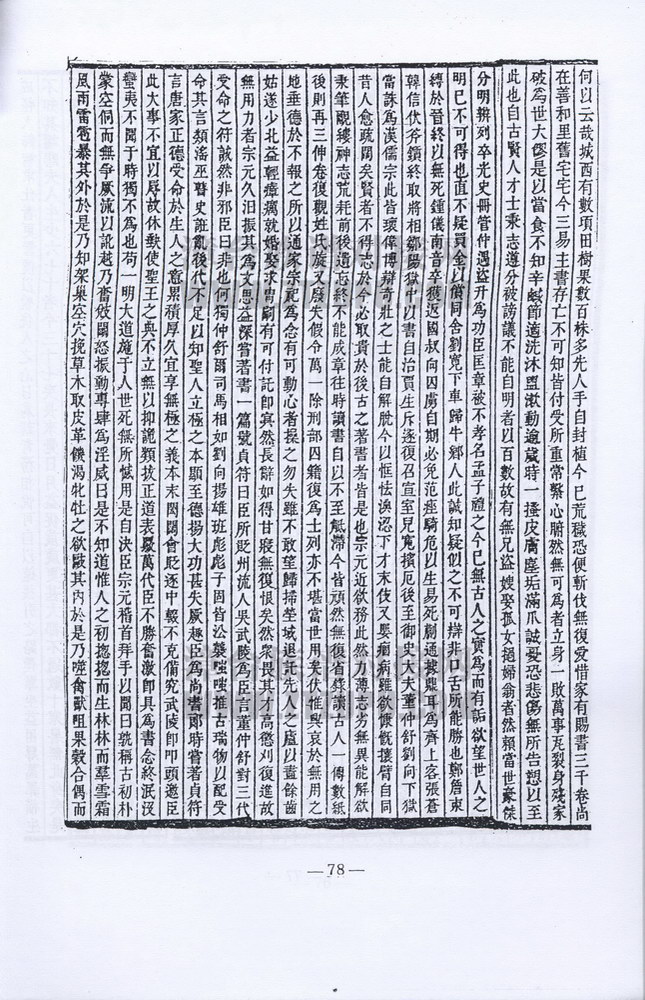 何以云哉城西有數頃田樹果數百株多先人手自封植今已荒穢恐便斬伐無復愛惜家有賜書三千卷尚
在善和里舊宅宅今三易主書存亡不可知皆付受所重常繫心腑然無可為者立身一敗萬事瓦裂身殘家
破為世大僇是以當食不知辛鹹節適洗沐盥漱動逾歲時一搔皮膚塵垢滿爪誠憂恐悲傷無所告愬以至
此也自古賢人才士秉志遵分被謗議不能自明者以百數故有無兄盜嫂娶孤女撾婦翁者然賴當世豪傑
分明辨列卒光史冊管仲遇盜升為功臣匡章被不孝名孟子禮之今已無古人之實為而有詬欲望世人之
明已不可得也直不疑買金以償同舍劉寬下車歸牛鄉人此誠知疑似之不可辯非口舌所能勝也鄭詹束
縛於晉終以無死鍾儀南音卒獲返國叔向囚虜自期必免范痤騎危以生易死蒯通據鼎耳為齊上客張蒼
韓信伏斧鑕終取將相鄒陽獄中以書自治賈生斥逐復召宣室兒寬擯厄後至御史大夫董仲舒劉向下獄
當誅為漢儒宗此皆瓌偉博辯奇壯之士能自解脫今以恇怯淟涊下才末伎又嬰痼病雖欲慷慨攘臂自同
昔人愈疏闊矣賢者不得志於今必取貴於後古之著書者皆是也宗元近欲務此然力薄志劣無異能解欲
秉筆覼縷神志荒耗前後遺忘終不能成章往時讀書自以不至觝滯今皆頑然無復省錄讀古人一傳數紙
後則再三伸卷復觀姓氏旋又廢失假令萬一除刑部囚籍復為士列亦不堪當世用矣伏惟興哀於無用之
地垂德於不報之所以通家宗祀為念有可動心者操之勿失雖不敢望歸掃塋域退託先人之廬以盡餘齒
姑遂少北益輕瘴癘就婚娶求胄嗣有可付託即冥然長辭如得甘寢無復恨矣然衆畏其才高懲刈復進故
無用力者宗元久汨振其為文思益深嘗著書一篇號貞符曰臣所貶州流人吳武陵為臣言董仲舒對三代
受命之符誠然非邪臣曰非也何獨仲舒爾司馬相如劉向揚雄班彪彪子固皆沿襲嗤嗤推古瑞物以配受
命其言類淫巫瞽史誑亂後代不足以知聖人立極之本顯至德揚大功甚失厥趣臣為尚書郎時嘗著貞符
言唐家正德受命於生人之意累積厚久宜享無極之義本末閎闊會貶逐中輟不克備究武陵即叩頭邀臣
此大事不宜以辱故休缺使聖王之典不立無以抑詭類拔正道表覈萬代臣不勝奮激即具為書念終泯沒
蠻夷不聞于時獨不為也苟一明大道施于人世死無所憾用是自決臣宗元稽首拜手以聞曰孰稱古初朴
蒙空侗而無爭厥流以訛越乃奮敓鬭怒振動專肆為淫威曰是不知道惟人之初揔揔而生林林而羣雪霜
風雨雷雹暴其外於是乃知架巢空穴挽草木取皮革饑渴牝牡之欲敺其內於是乃噬禽獸咀果穀合偶而
—78—